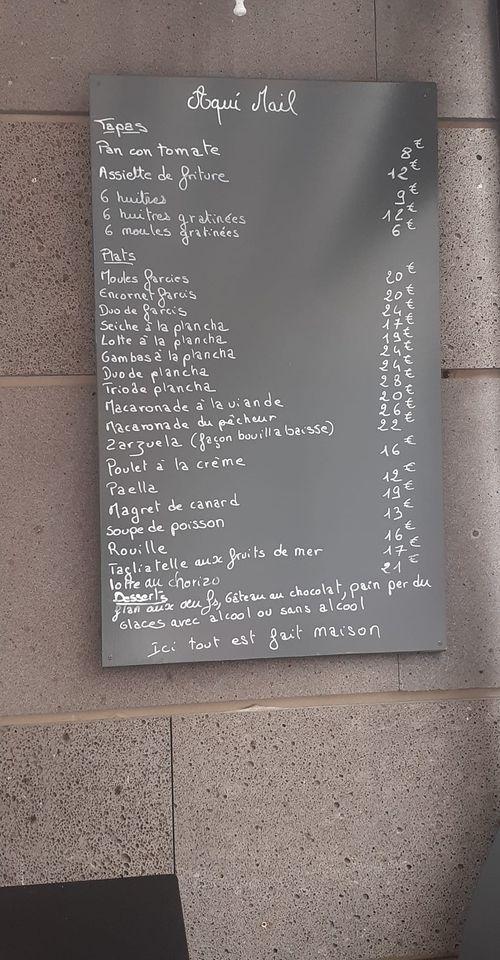 Aqui Mail
Tapas
Pan con tomate 8€
Assiette de friture 12€
6 huitres 9€
6 huitres gratinées 12€
6 moules gratinées 6€
Plats
Moules farcies 20€
Encornet farcis 20€
Duo de farcis 24€
Seiche à la plancha 17€
Lotte à la plancha 19€
Gambas à la plancha 24€
Duo de plancha 24€
Trio de plancha 28€
Macaronade à la viande 20€
Macaronade du pêcheur 26€
Zarzuela (façon bouillabaisse) 22€
Poulet à la crème 16€
Paella 12€
Magret de canard 19€
Soupe de poisson 13€
Rouille 16€
Tagliatelle aux fruits de mer 17€
lotte au chorizo 21€
Desserts
flan aux œufs, Gâteau au chocolat, pain perdu
Glaces avec alcool ou sans alcool
Ici tout est fait maison